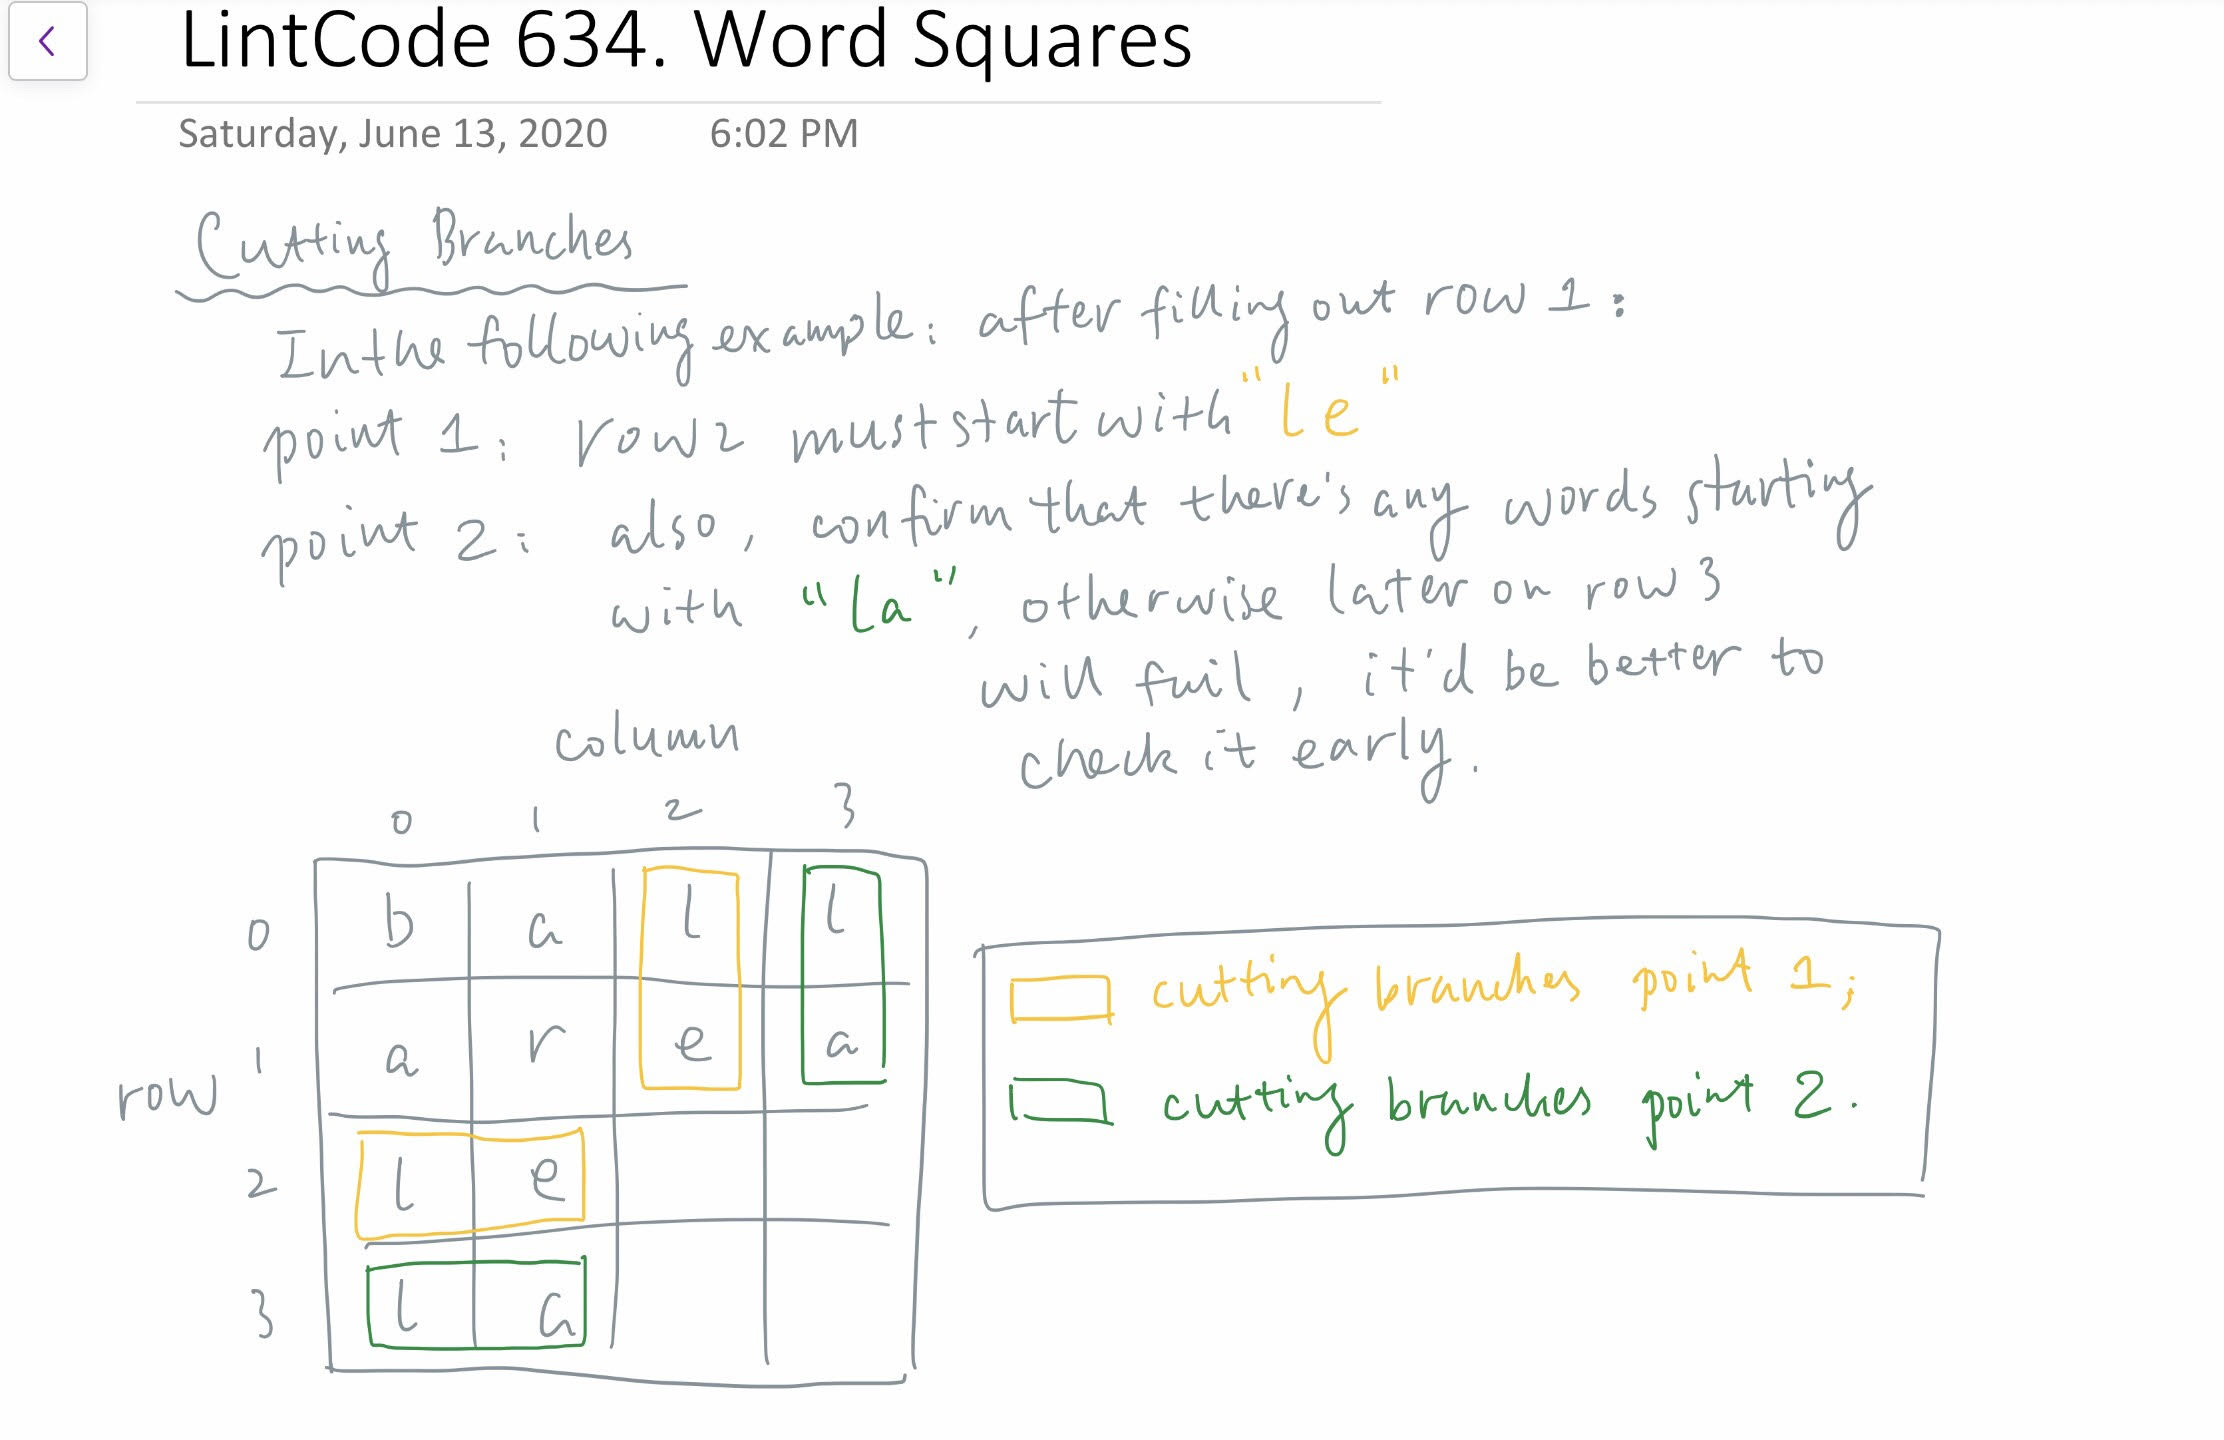 LintCode 634. Word Squares
Saturday, June 13, 2020 6:02 PM
Cutting Branches
In the following example: after filling out row 1:
point 1: row 2 must start with "le"
point 2: also, confirm that there's any words starting
with "la", otherwise later on row 3
will fail, it'd be better to
check it early.
column
0 1 2 3
0 b a l l
1 a r e a
row
2 l e
3 l a
cutting branches point 1;
cutting branches point 2.